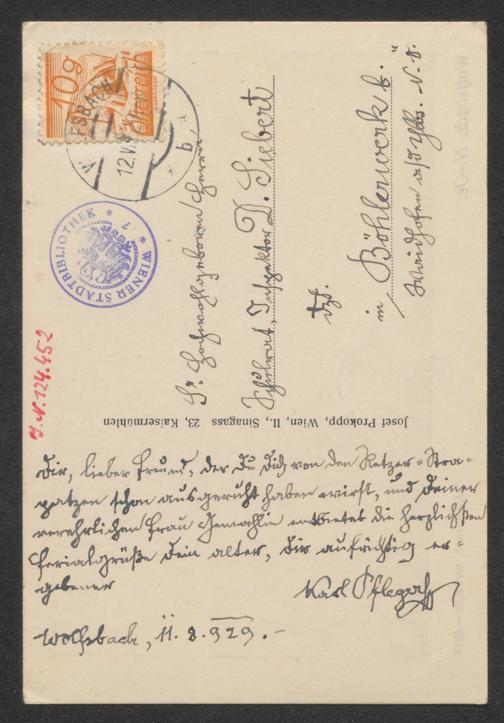 10g
12.VIII
* WIENER STADTBIBLIOTHEK *
7
J.N. 124.452
Sr. Hochwohlgeboren Herrn
Schulrat, Inspektor D. Siebert
dzt.
in Böhlerwerk b.
Waidhofen a/d Ybbs. N.-Ö.
Wolfsbach, N.-Oe.
Josef Prokopp, Wien, II., Sinagass 23, Kaisermühlen
Dir, lieber Freund, der Du Dich von den Retzer-Stra-
patzen schon ausgeruht haben wirst, und Deiner
verehrlichen Frau Gemahlin entbietet die herzlichsten
Ferialgrüße Dein alter, Dir aufrichtig er-
gebener
Karl Pflegerl
Wolfsbach, 11.8.929.-